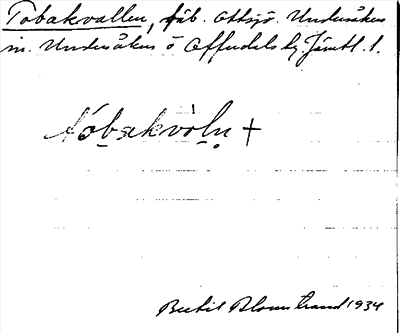 Tobakvallen, fäb. Ottsjö. Undersåkers
sn. Undersåkers o Offerdals tg. Jämtl. l.
tóbakvòln +
Bertil Blomstrand 1934